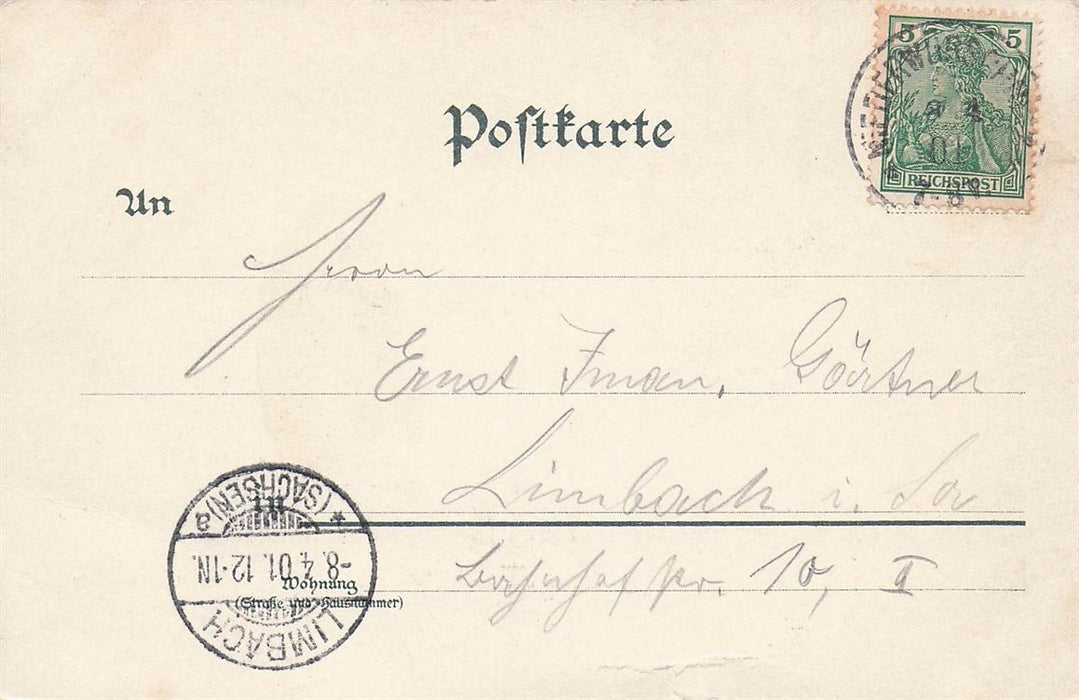 5 5
REICHSPOST
01
Postkarte
An
Herrn
Ernst Iman, Gärtner
Limbach i. Sa
in
Bahnhofstr. 10, II
Wohnung
(Straße und Hausnummer)
(SACHSEN) a
-8.4.01. 12-1N.
LIMBACH